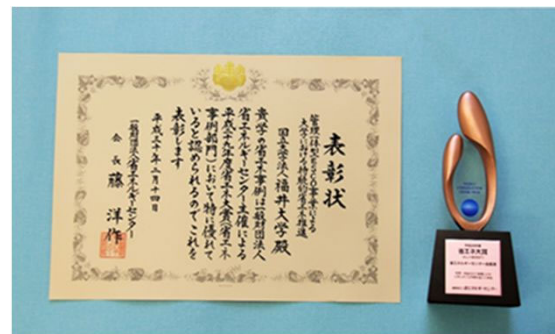 表彰状
管理一体型ESCO事業による
大学における持続的省エネ推進
国立大学法人 福井大学殿
貴学の省エネ事例は一般財団法人
省エネルギーセンター主催による
平成二十九年度省エネ大賞(省エネ
事例部門)において特に優れて
いると認められるのでこれを
表彰します
平成三十年二月十四日
一般財団法人省エネルギーセンター
会長 藤 洋作
省エネ大賞
省エネルギーセンター会長賞